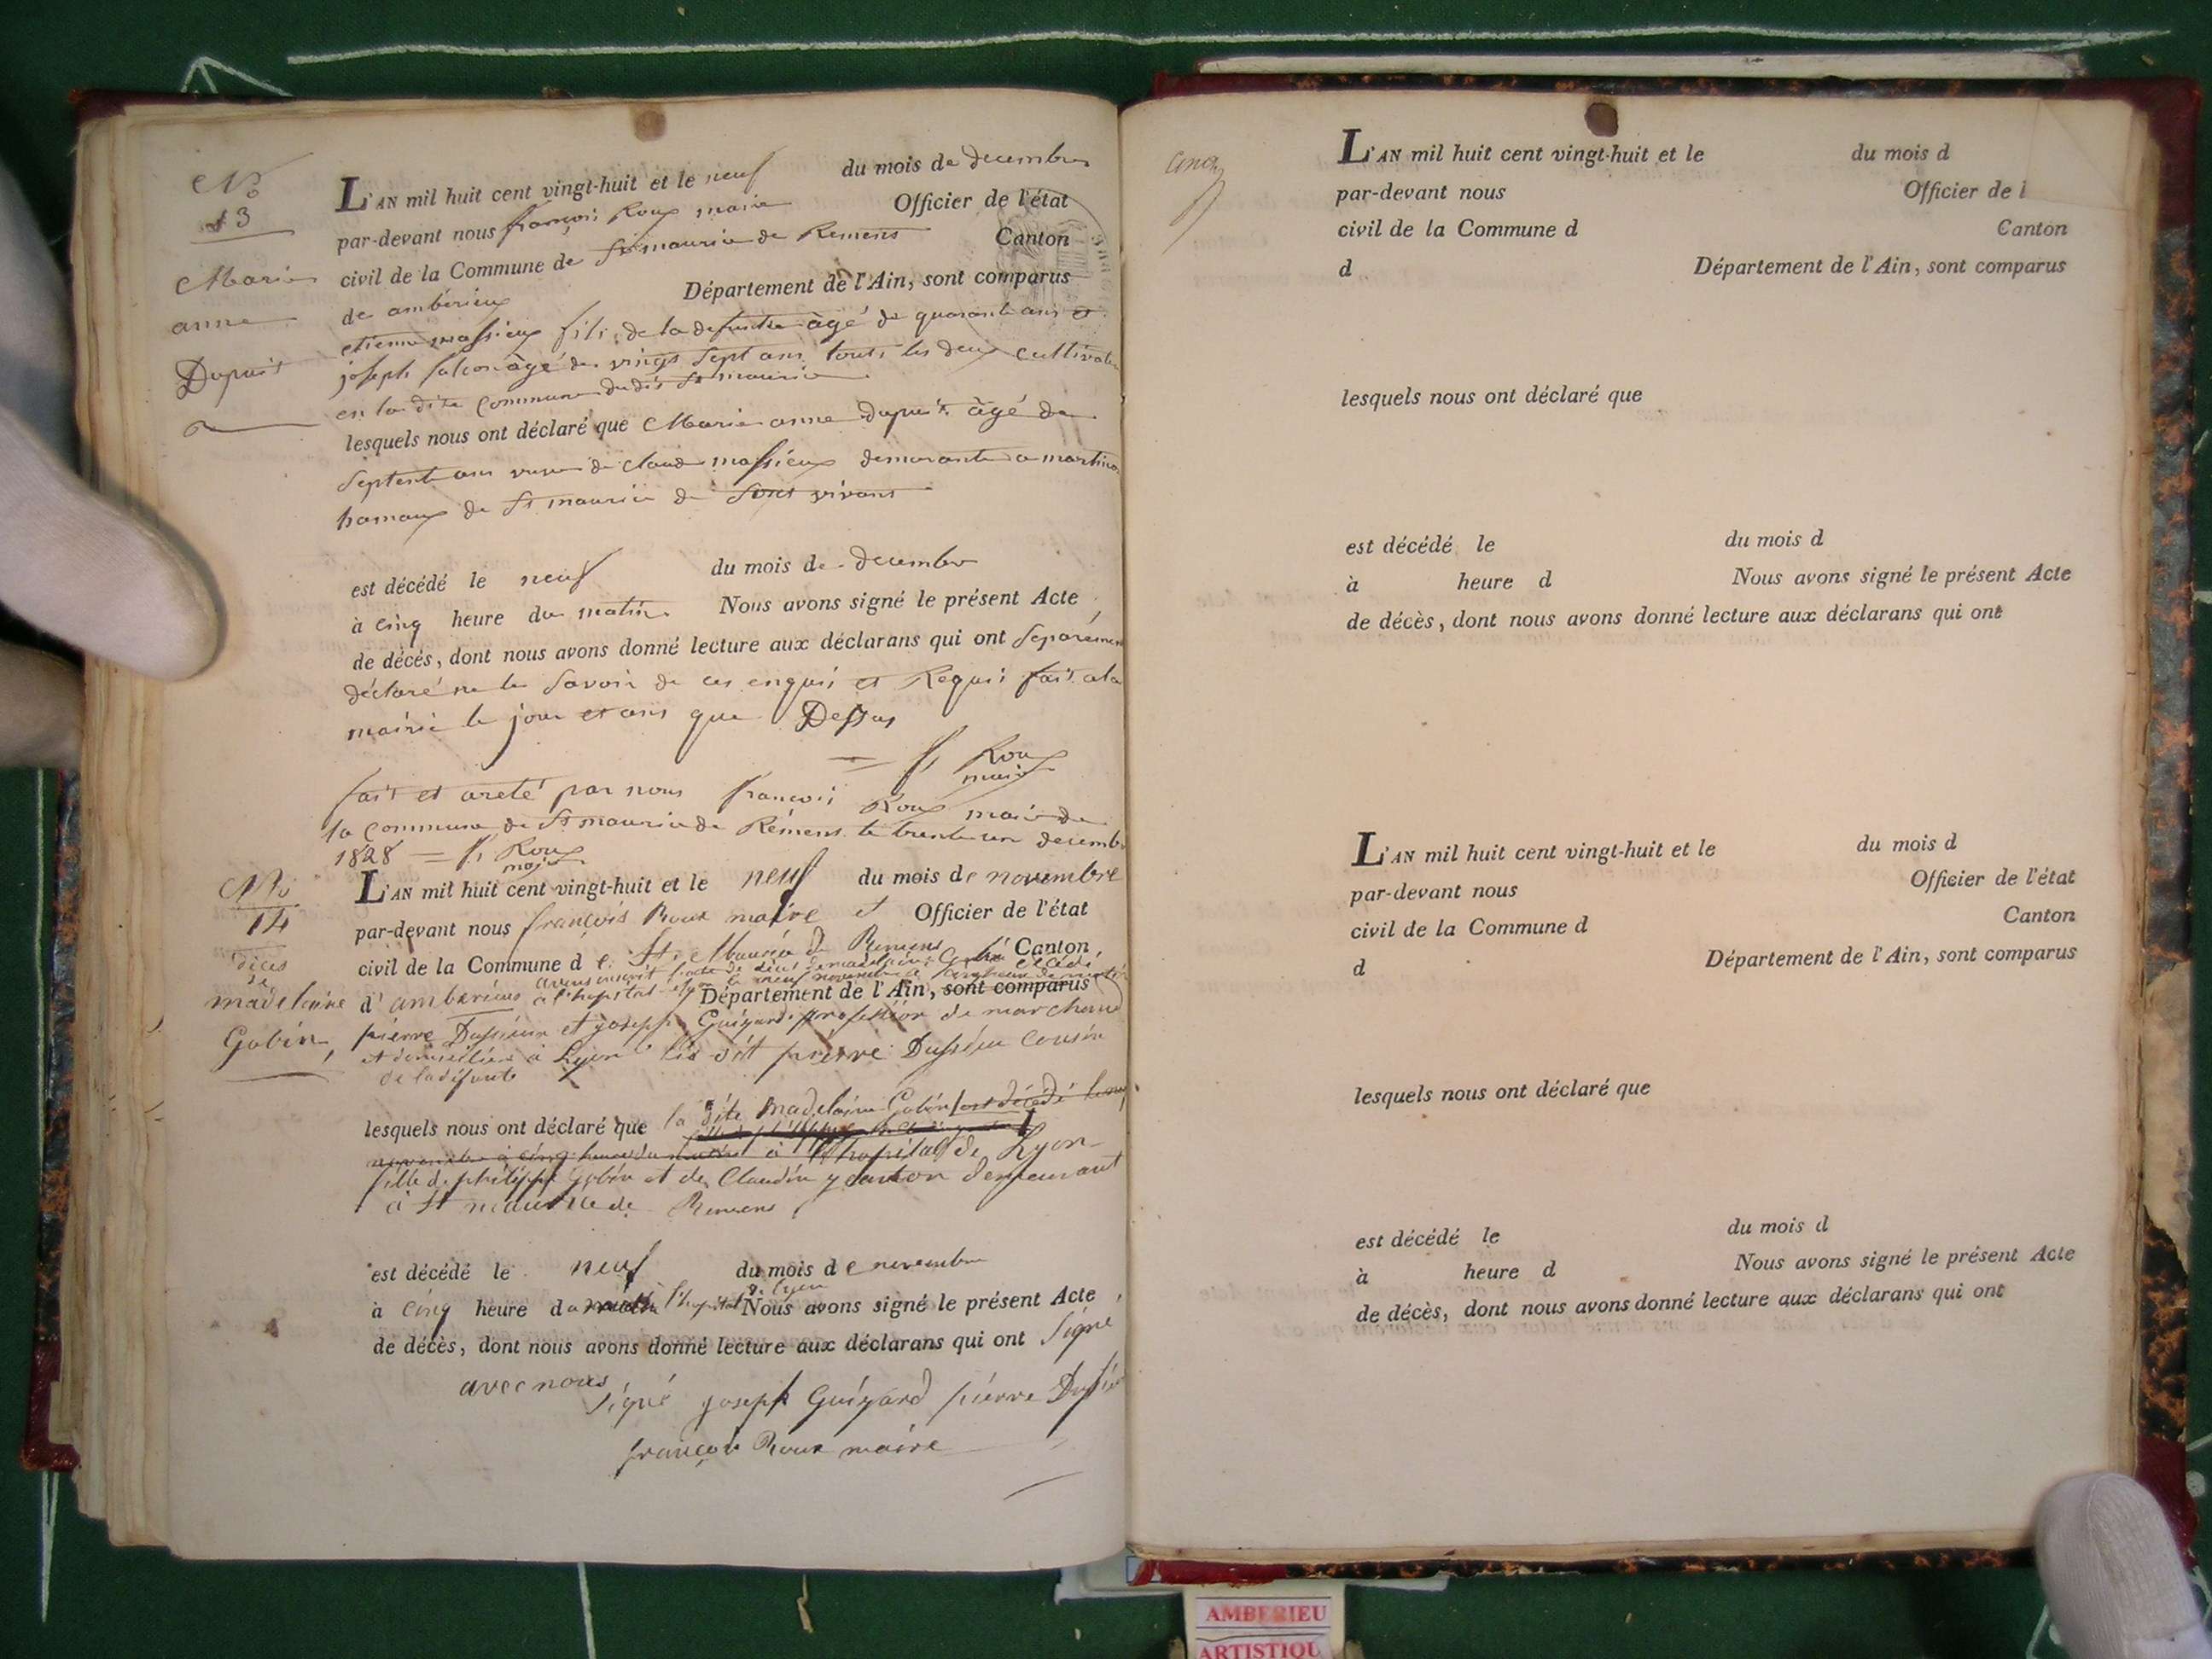 No
13
Marie
anne
Dupuit
L'AN mil huit cent vingt-huit et le neuf du mois de decembre
par-devant nous françois Roux maire Officier de l'état
civil de la Commune de St maurice de Remens Canton
de ambérieux Département de l'Ain, sont comparus
etienne massieux fils de la defunte àgé de quarante ans et
joseph falcon àgé de vingt sept ans touts les deux cultivate
en la dite commune dudit St maurice
lesquels nous ont déclaré que Marie anne Dupuit àgé de
septente ans veuve de claude massieux demeurante a martina
hamaux de St maurice de son vivant
est décédé le neuf du mois de decembre
à cinq heure du matin Nous avons signé le présent Acte
de décés, dont nous avons donné lecture aux déclarans qui ont séparémen
déclaré ne le savoir de ces enquis et Requis fait a la
mairie le jour et ans que Dessus
= f, Roux
maire
fait et areté par nous françois Roux maire de
la commune de St maurice de Rémens le trente un decemb
1828 = f, Roux
maire
No
14
décès
de
madelaine
Gobin
L'AN mil huit cent vingt-huit et le neuf du mois de novembre
par-devant nous françois Roux maire et Officier de l'état
civil de la Commune de St Maurice de Remens Canton
avons inscrit l'acte de décès de madelaine Gobin décédé
d'ambérieux à l'hopital de Lyon le neuf novembre a cinq heure de matin
Département de l'Ain, sont comparus
pierre Dussieux et joseph Guigard profession de marchand
et domiciliés à Lyon le dit pierre Dussieu cousin
de la défunte
lesquels nous ont déclaré que la dite Madelaine Gobin est décédé le neuf
novembre à cinq heures du matin à l'hopital de Lyon
fille de philippe Gobin et de Claudine demeurant
à St maurice de Remens
est décédé le neuf du mois de novembre
à cinq heure du matin l'hopital de Lyon Nous avons signé le présent Acte
de décès, dont nous avons donné lecture aux déclarans qui ont signé
avec nous
signé joseph Guigard pierre Dussie
françois Roux maire
cinq
L'AN mil huit cent vingt-huit et le du mois d
par-devant nous Officier de l
civil de la Commune d Canton
d Département de l'Ain, sont comparus
lesquels nous ont déclaré que
est décédé le du mois d
à heure d Nous avons signé le présent Acte
de décès, dont nous avons donné lecture aux déclarans qui ont
L'AN mil huit cent vingt-huit et le du mois d
par-devant nous Officier de l'état
civil de la Commune d Canton
d Département de l'Ain, sont comparus
lesquels nous ont déclaré que
est décédé le du mois d
à heure d Nous avons signé le présent Acte
de décès, dont nous avons donné lecture aux déclarans qui ont
AMBERIEU
ARTISTIQU